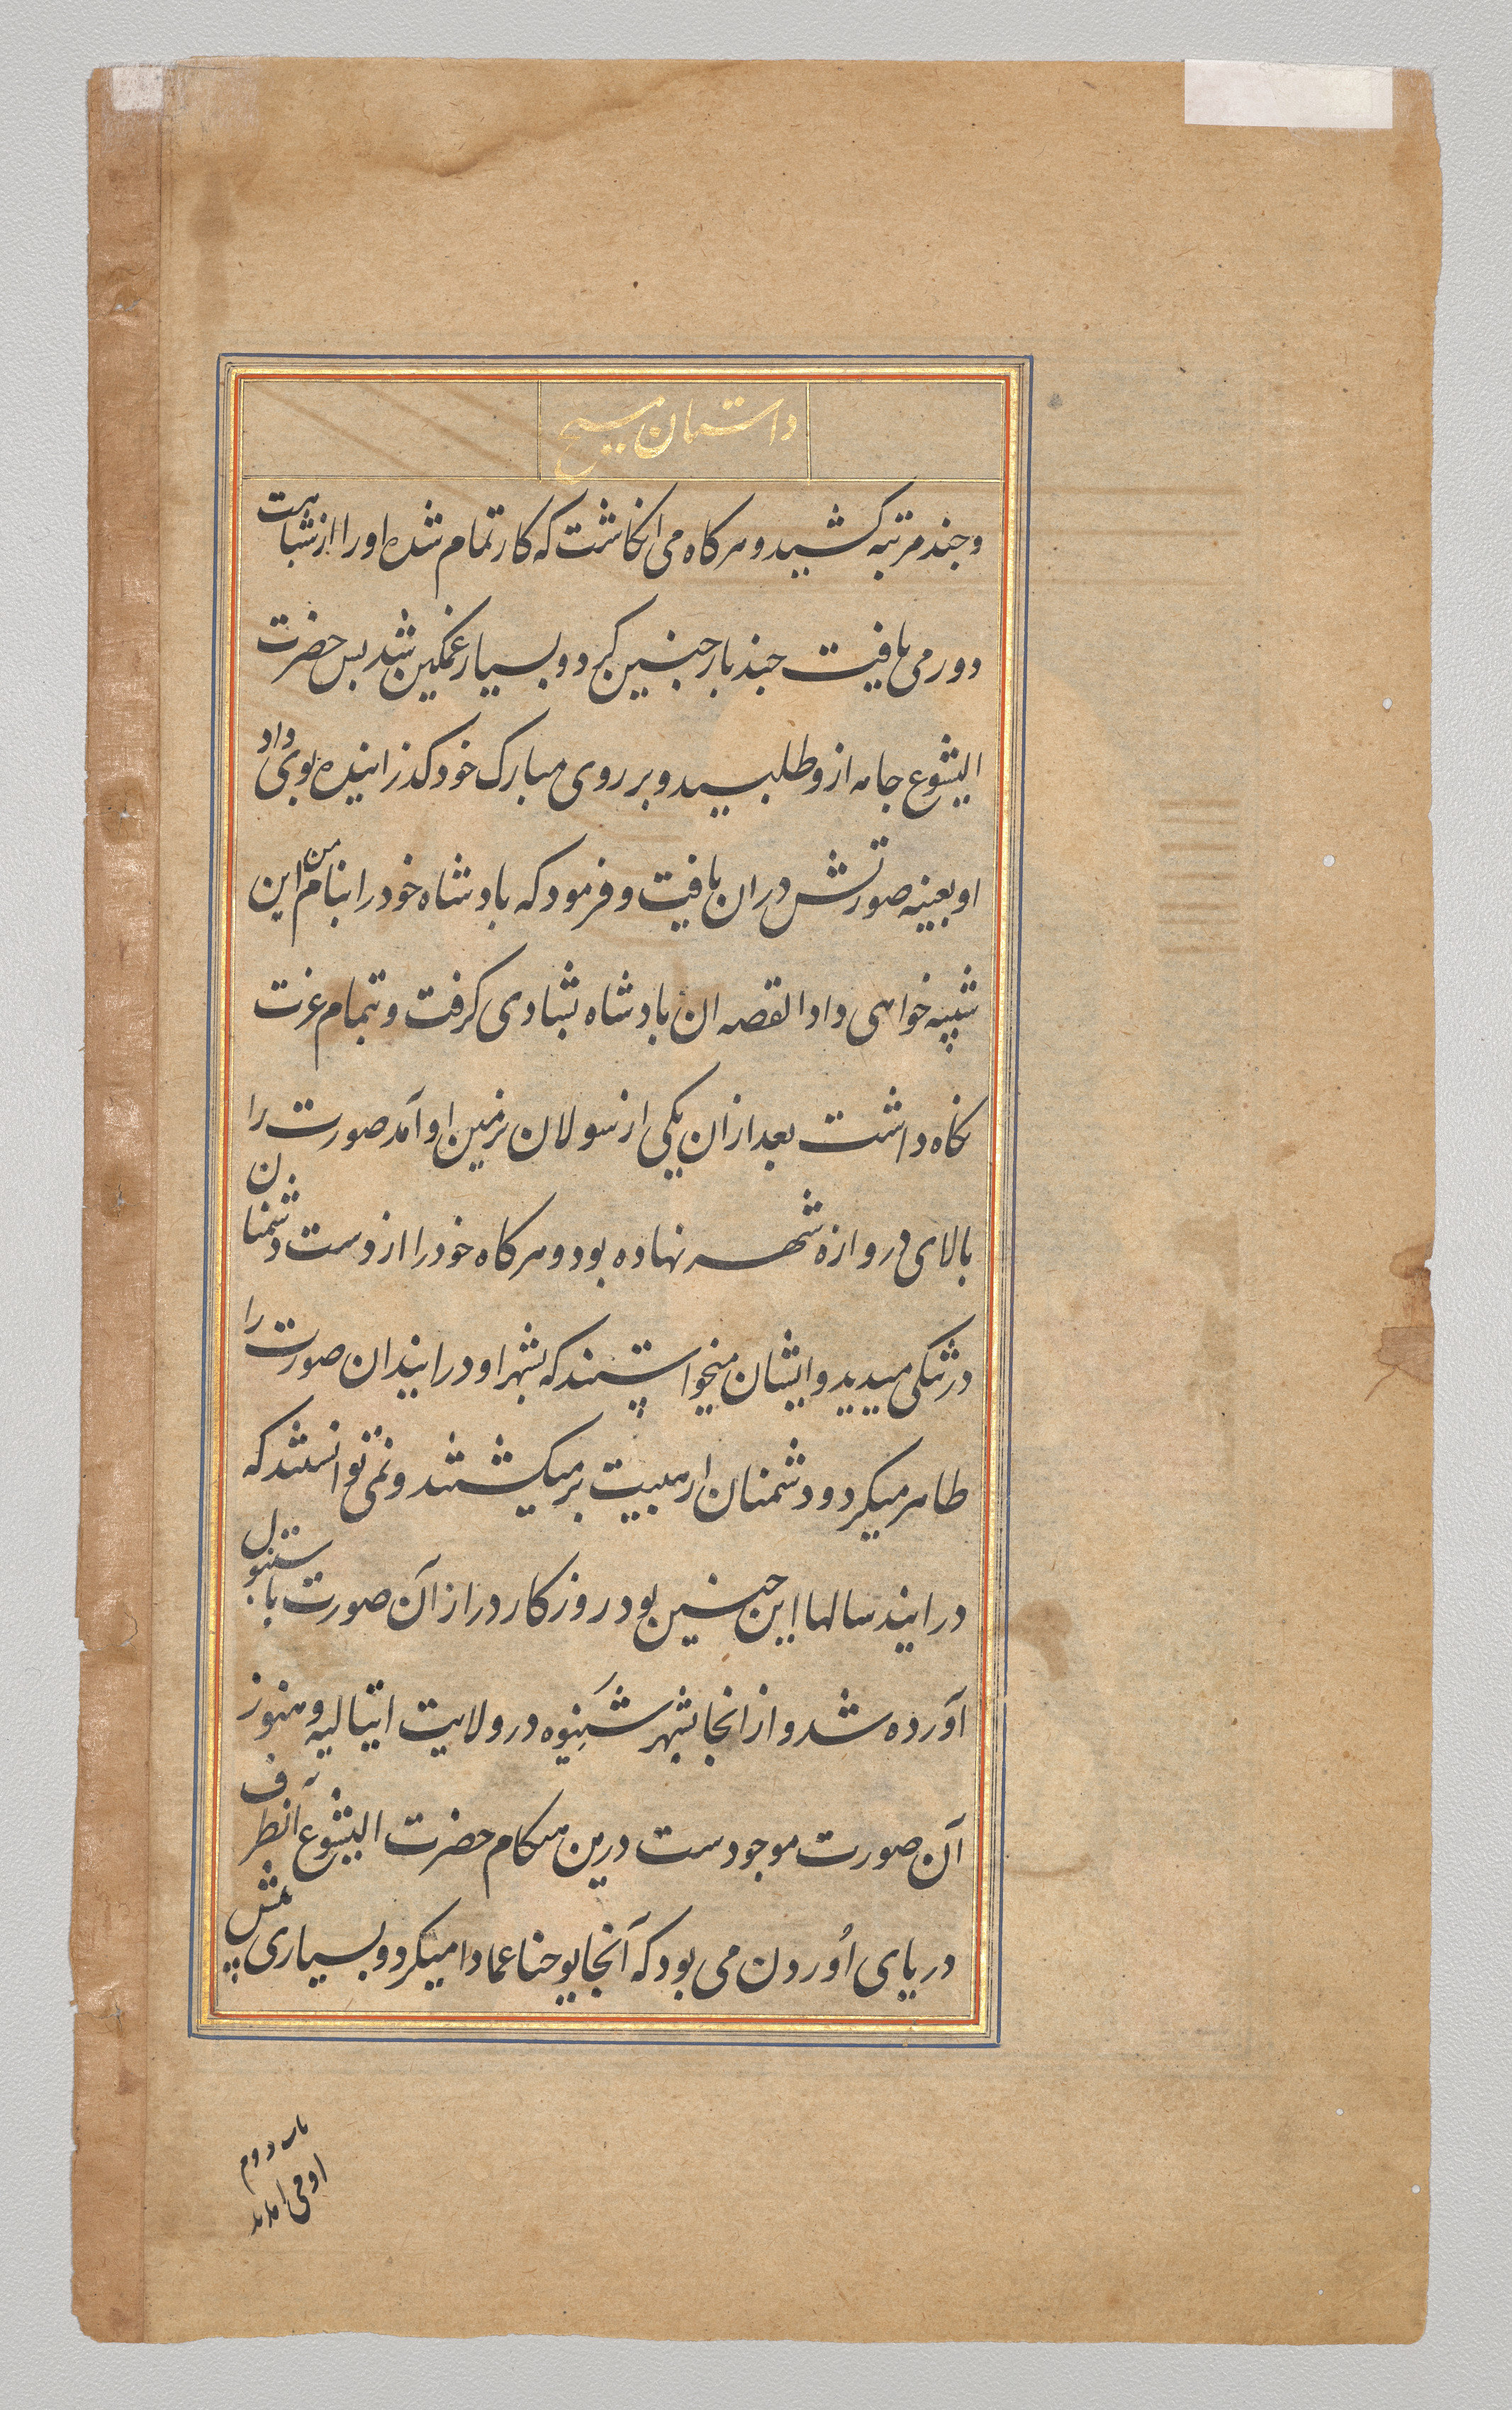 داستان مسیح
و جند مرتبه کشید و هرکاه می انکاشت که کار تمام شده او را از شباهت
دور می یافت جند بار جنین کرد و بسیار غمکین شد بس حضرت
الیشوع جامه ازو طلبید و بر روی مبارک خود کذرانیده بوی داد
او بعینه صورتش دران یافت و فرمود که بادشاه خود را بنام من این
شبیه خواهی داد القصه ان بادشاه بشادی کرفت و بتمام عزت
نکاه داشت بعد ازان یکی از رسولان بزمین او آمد صورت را
بالای دروازه شهر نهاده بود و هرکاه خود را از دست دشمنان
در تنکی میدید و ایشان میخواستند که بشهر او درایند ان صورت را
ظاهر میکرد و دشمنان از هیبت برمیکشتند و نمی توانستند که
درایند سالها این جنین بود روزکار دراز آن صورت باستنبول
آورده شد و از انجا بشهر شَنِیوه در ولایت ایتالیه و هنوز
آن صورت موجودست درین هنکام حضرت الیشوع آنطرف
دریای اُوردن می بود که آنجا یوحنا عمادا میکرد و بسیاری پیش
باب دوم
او می امدند